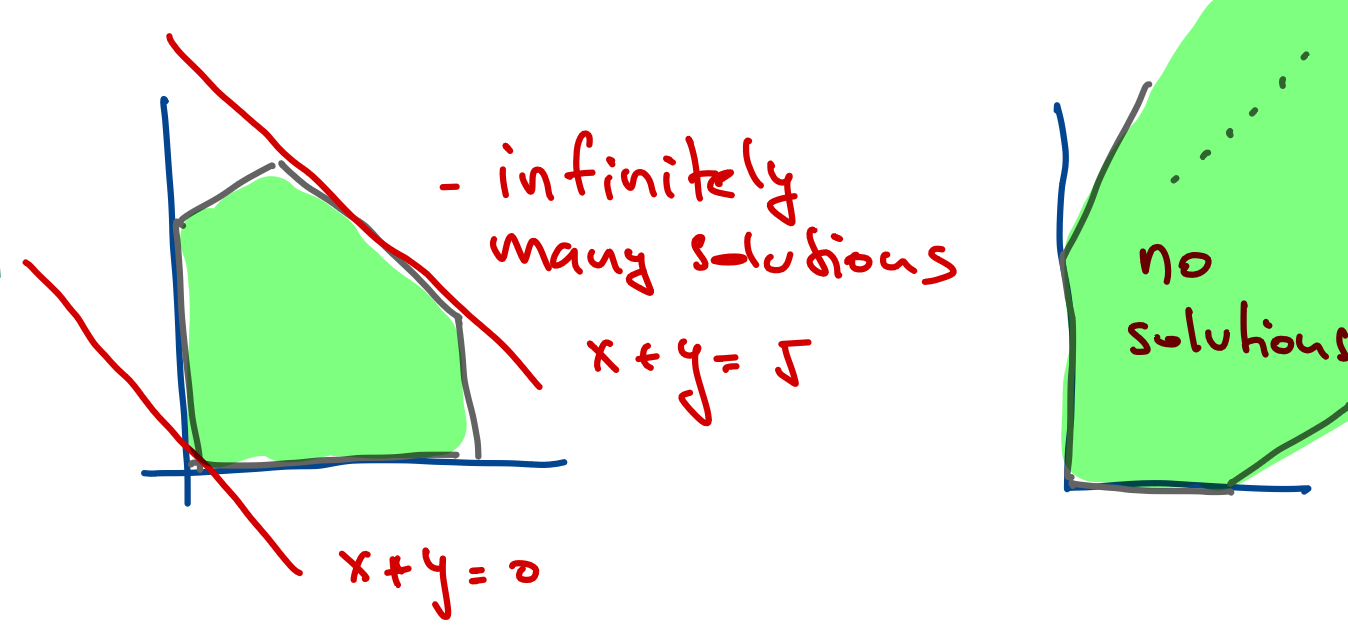 - infinitely
many solutions
x + y = 5
x + y = 0
no
solutions